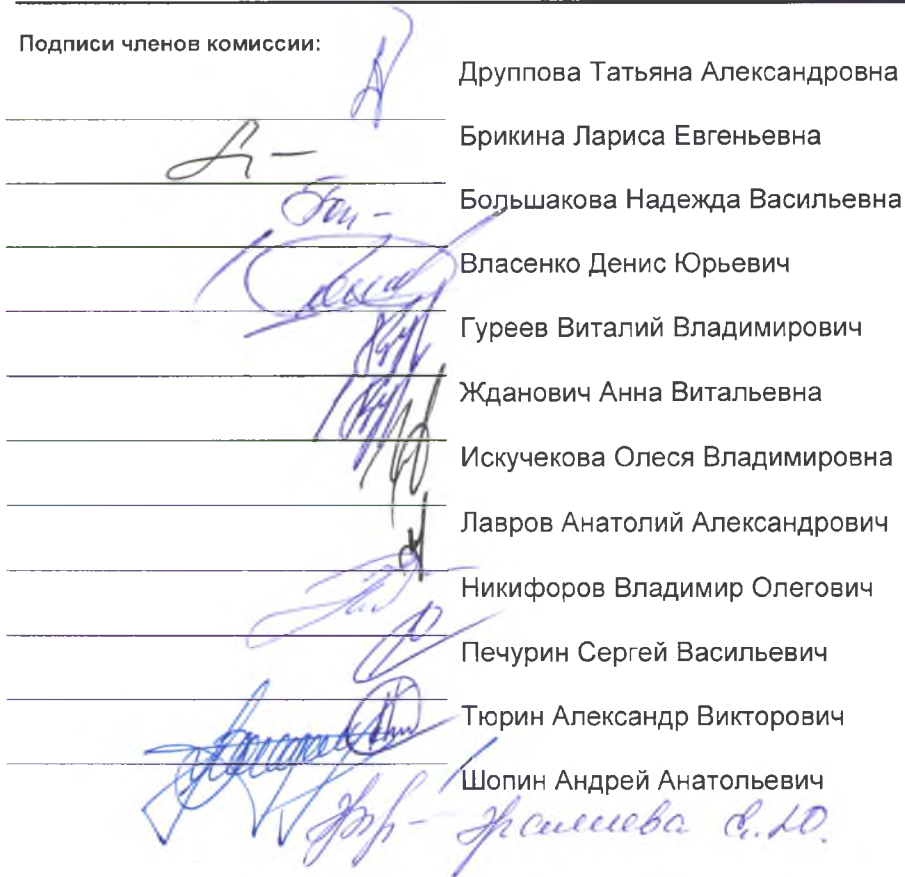 Подписи членов комиссии:
Друппова Татьяна Александровна
Брикина Лариса Евгеньевна
Большакова Надежда Васильевна
Власенко Денис Юрьевич
Гуреев Виталий Владимирович
Жданович Анна Витальевна
Искучекова Олеся Владимировна
Лавров Анатолий Александрович
Никифоров Владимир Олегович
Печурин Сергей Васильевич
Тюрин Александр Викторович
Шопин Андрей Анатольевич